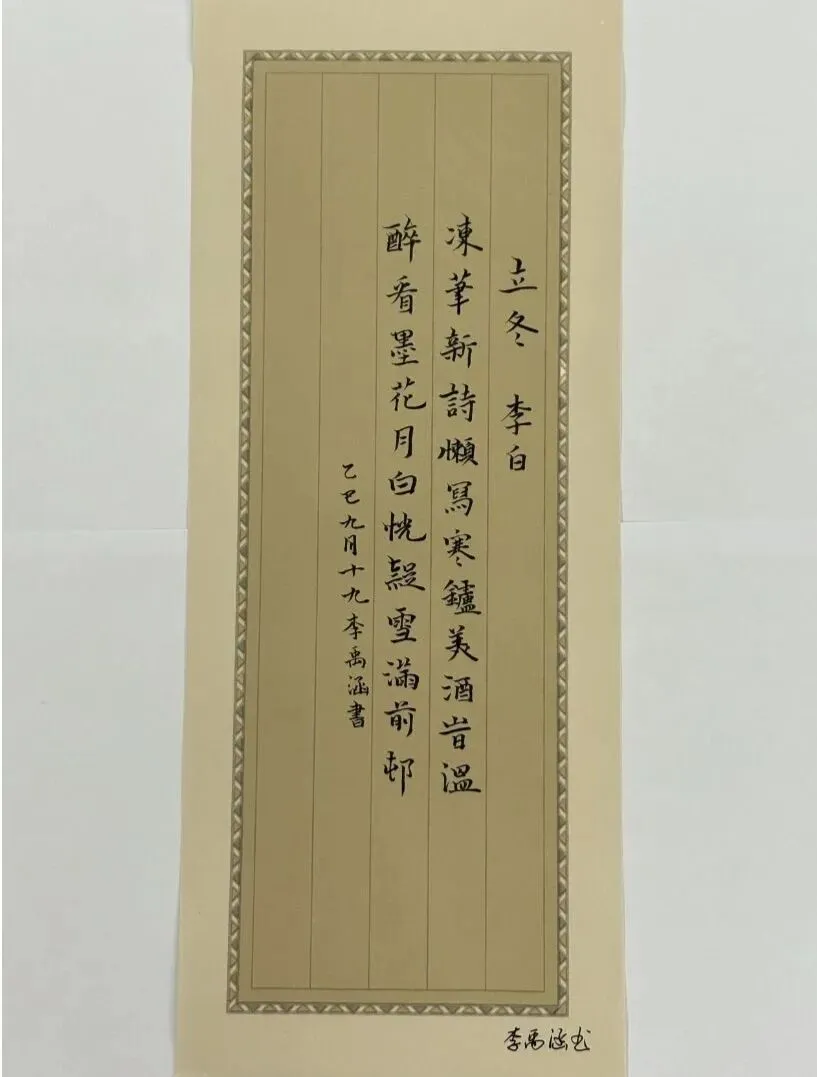 立冬 李白
凍筆新詩懶寫寒鑪美酒旹溫
醉看墨花月白恍疑雪滿前邨
乙巳九月十九李禹涵書
李禹涵书